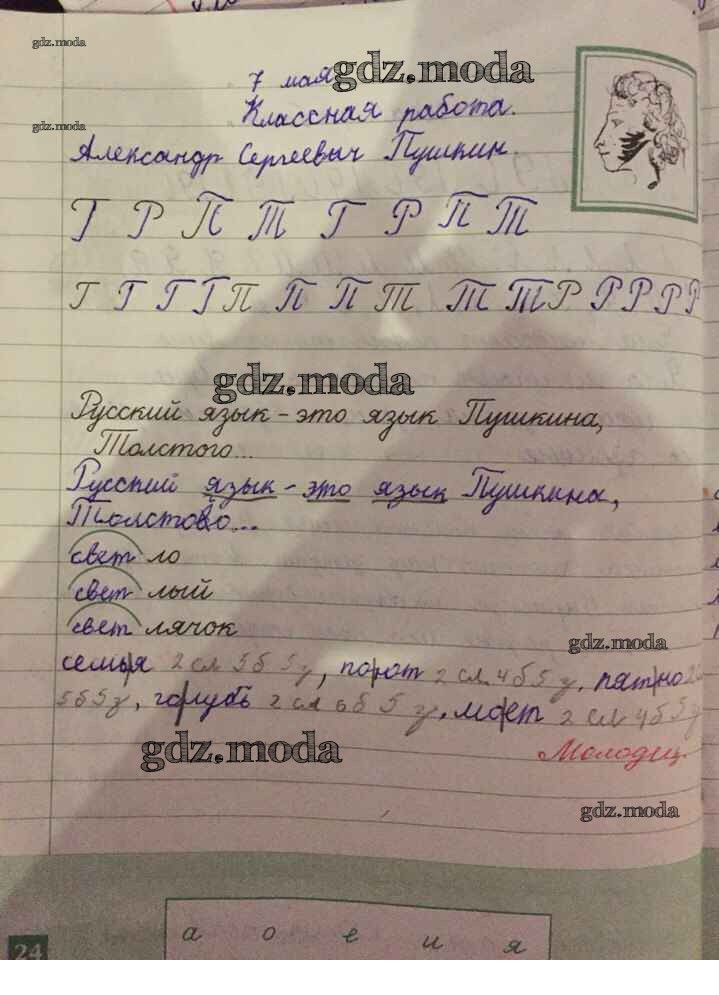 gdz.moda
7 мая
gdz.moda
Классная работа.
gdz.moda
Александр Сергеевич Пушкин.
Г Р П Т Г Р П Т
Г Г Г Г П П П Т Т Т Р Р Р Р Р
gdz.moda
Русский язык - это язык Пушкина,
Толстого...
Русский язык - это язык Пушкина,
Толстого...
светло
светлый
светлячок
gdz.moda
семья 2 сл 5 б 5 з, 2 сл. 4 б 5 з, пятно 2
5 б 5 з, голубь 2 сл 6 б 5 з, моет 2 сл 4 б 5 з
gdz.moda
Молодец
gdz.moda
24
а о е и я